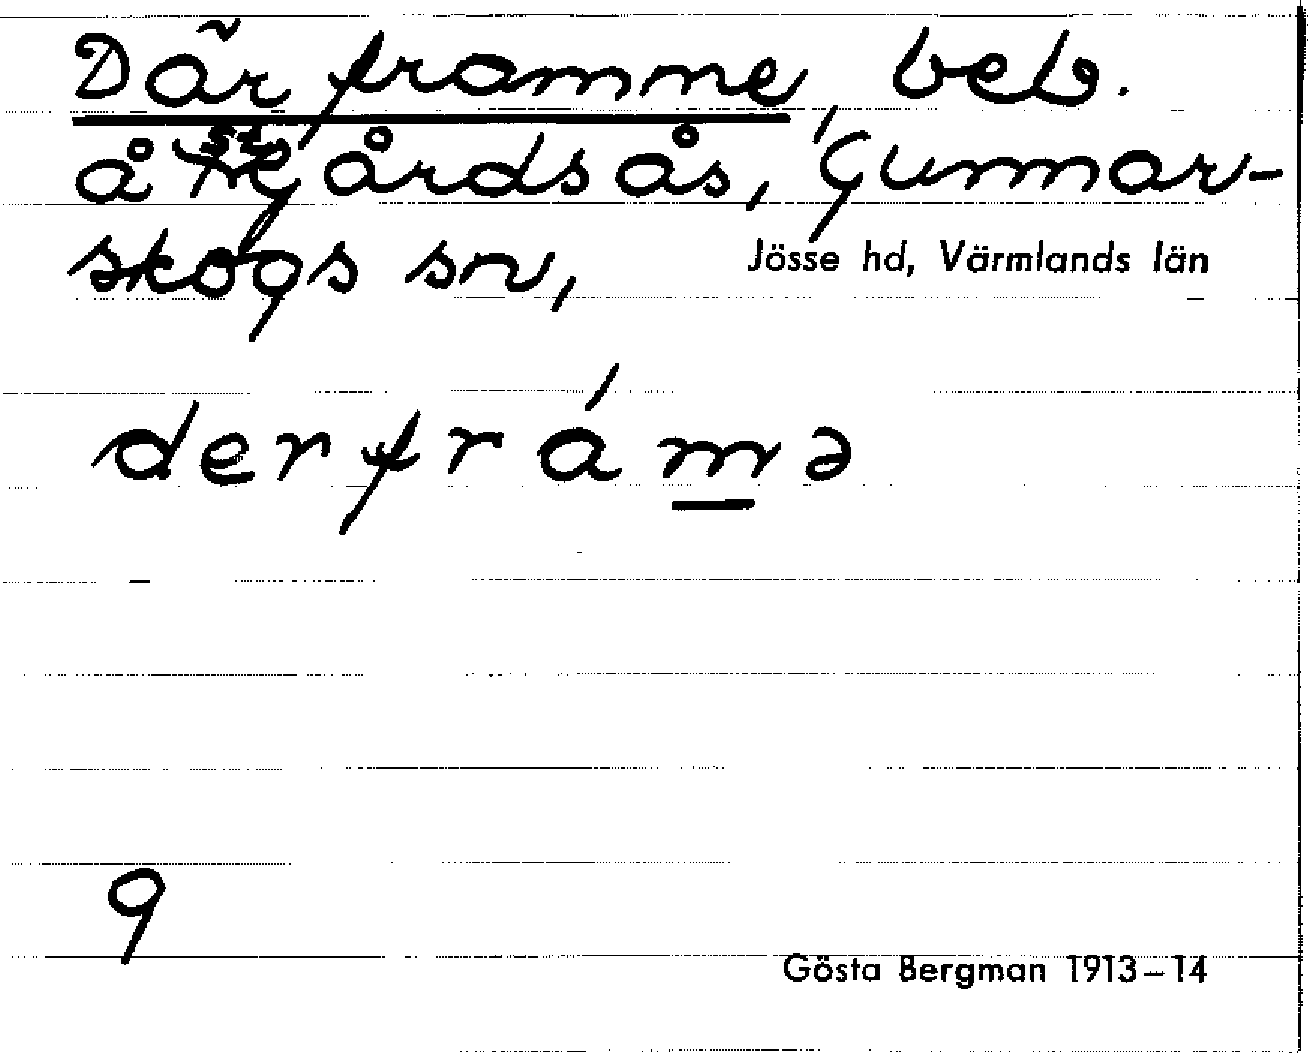 Där framme, beb.
å Stgårdsås, Gunnar-
skogs sn, Jösse hd, Värmlands län
derfrámə
9
Gösta Bergman 1913–14